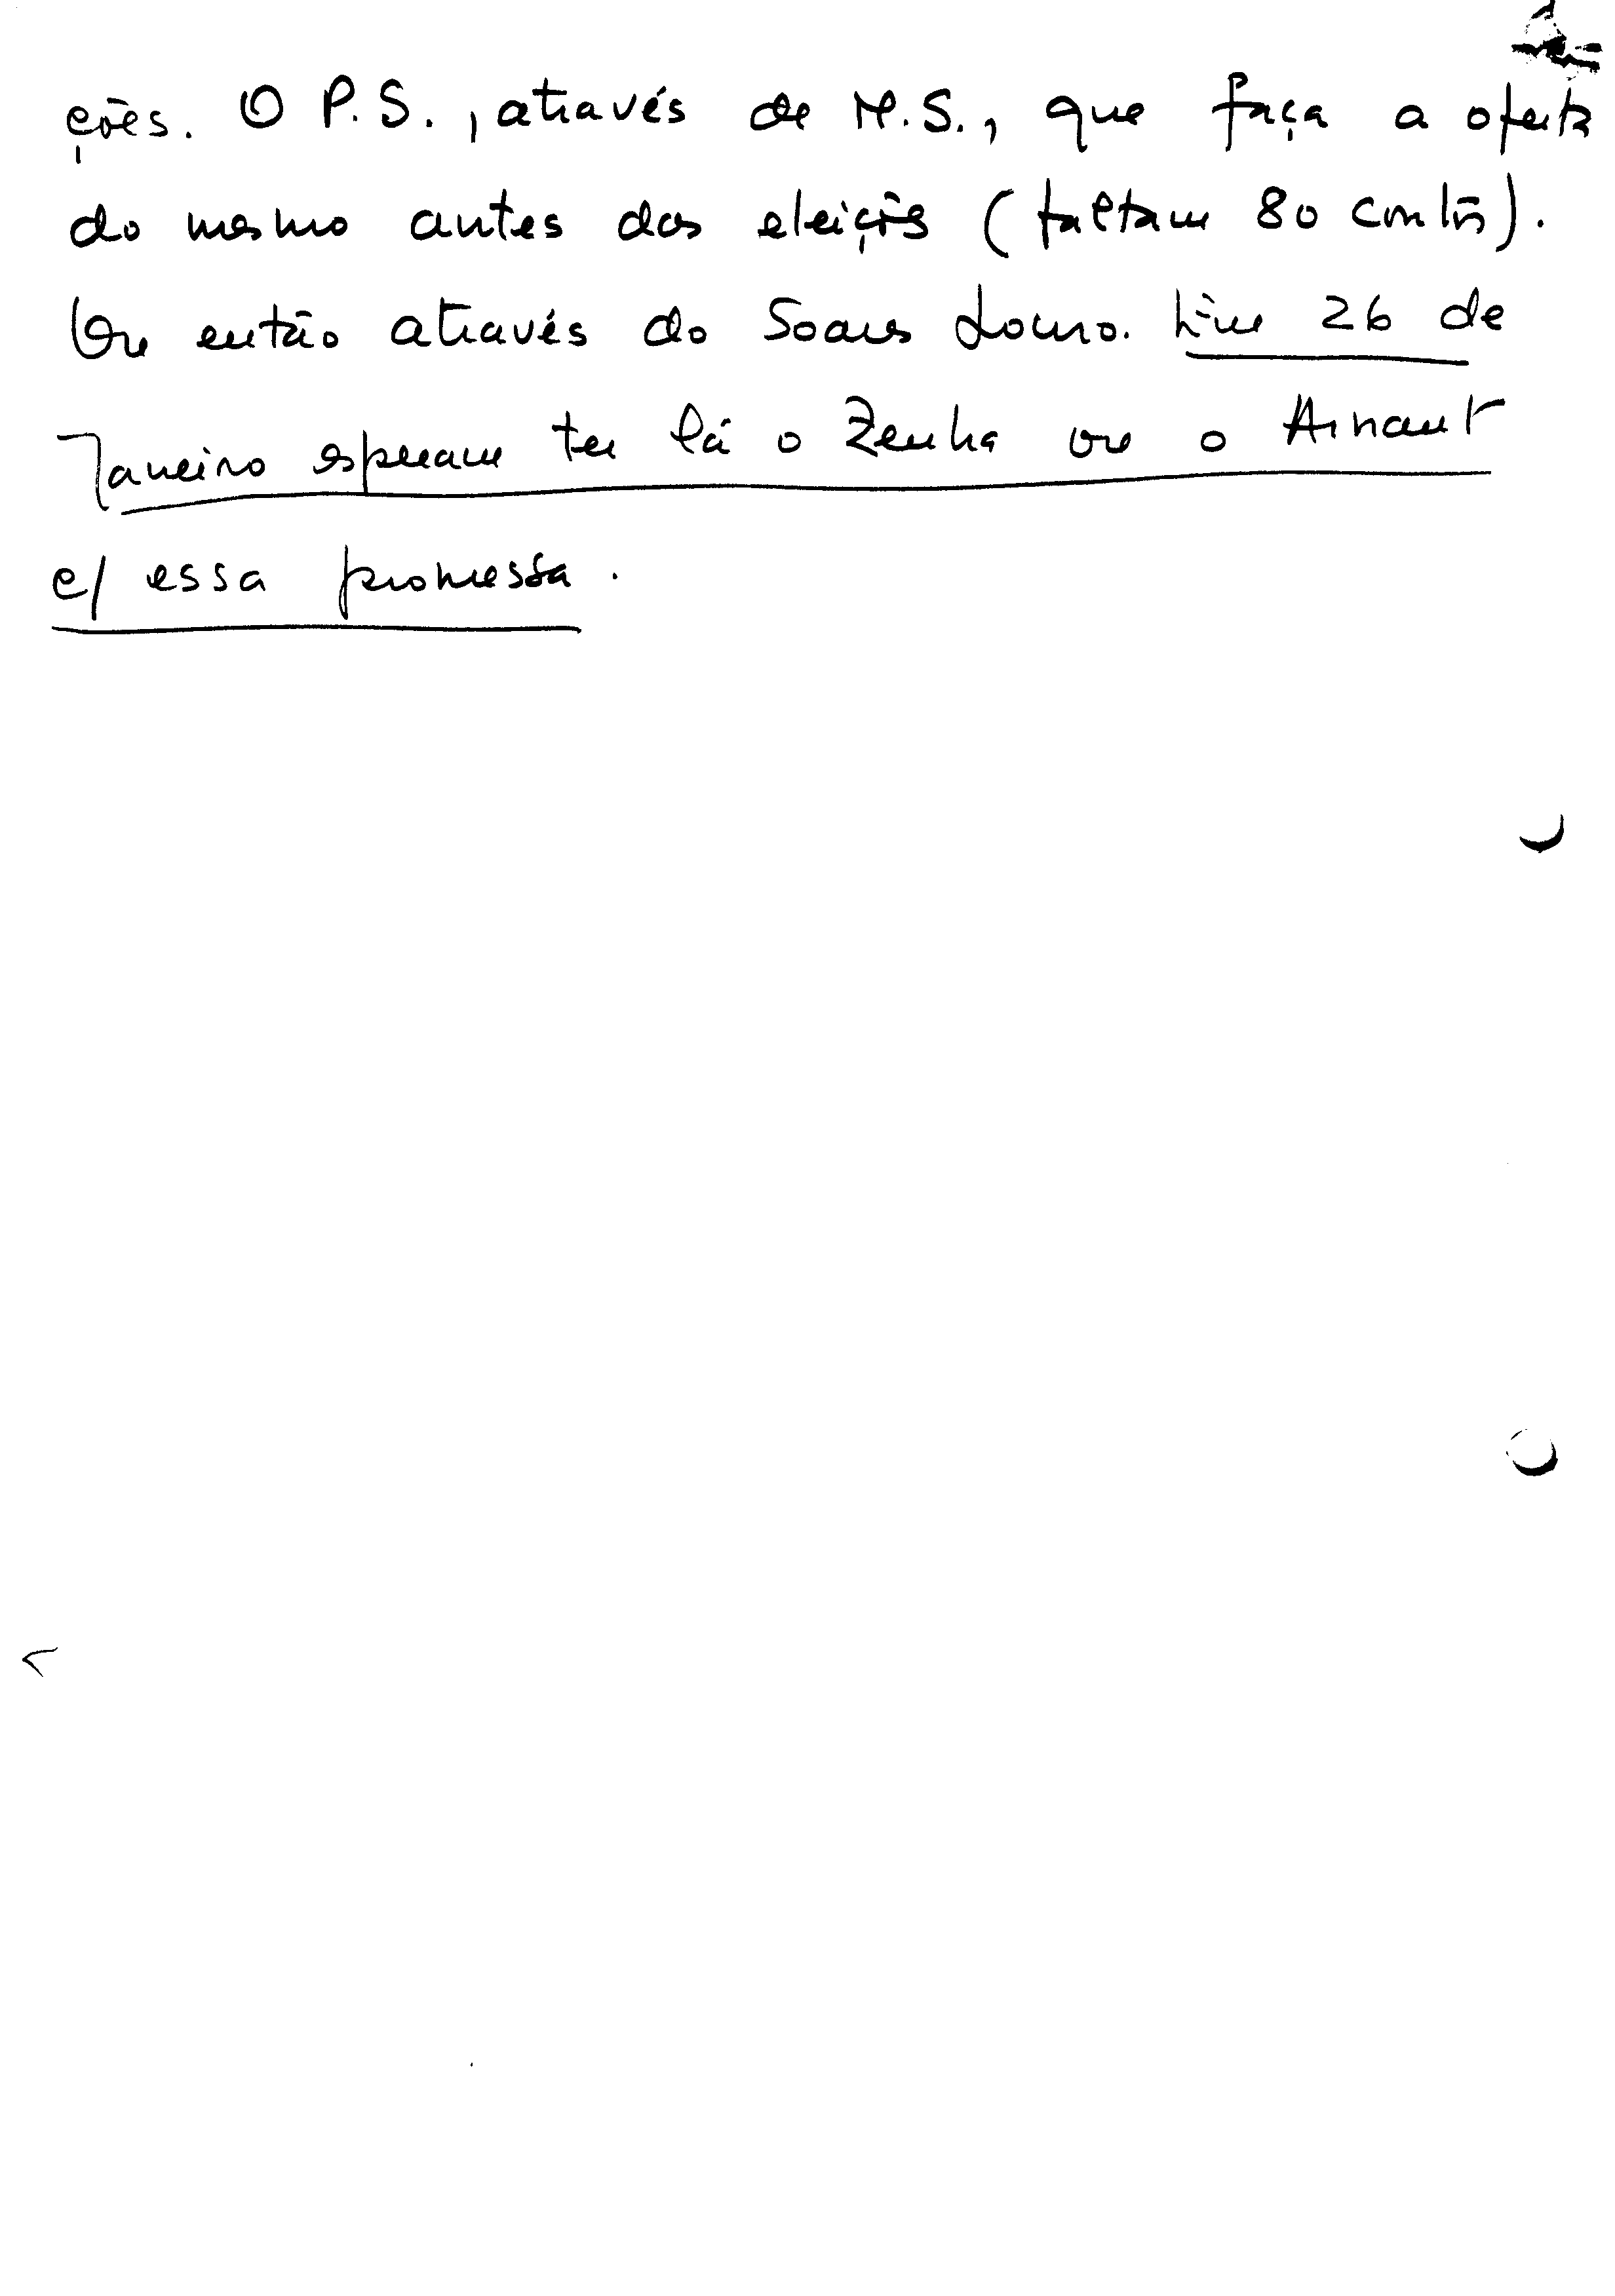 ções. O P.S., através de M.S., que faça a oferta
do mesmo antes das eleições (faltam 80 contos).
Ou então através do Soares Louro. Em 26 de
Janeiro esperam ter lá o Zenha ou o Arnaut
c/ essa promessa.